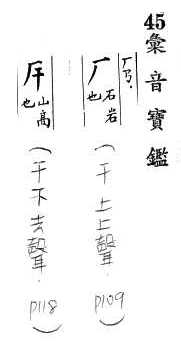 45彙音寶鑑
ㄏㄢˋ
厂 石岩也(干上上聲.P109)
厈 山高也(干下去聲.P118)